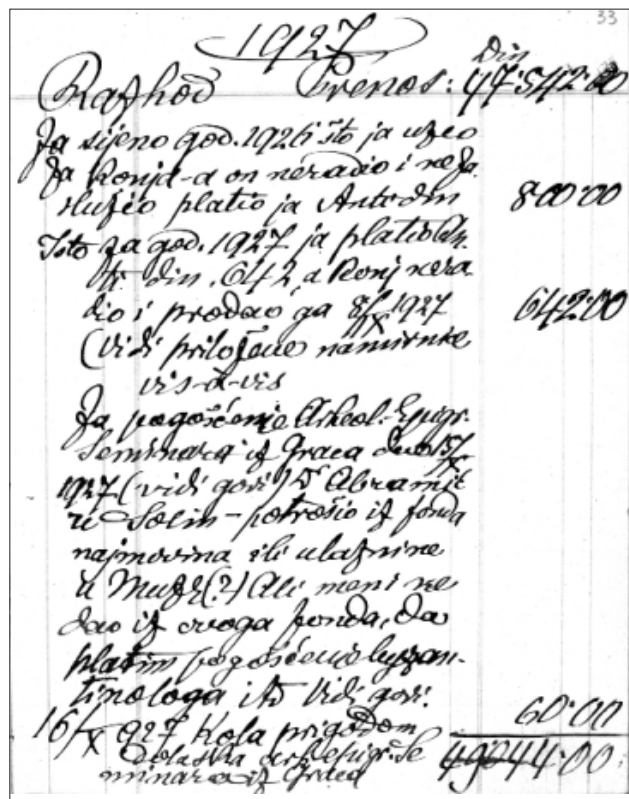 33
1927
Din
Razhod Prenos: 47:542:00
Za sijeno god. 1926 što ja uzeo
za konja-a on neradio i neza
služio platio ja Antoðin 800:00
Isto za god. 1927 ja platio
din. 642, a konj nera
dio i prodao ga 8/X 1927 642:00
(vidi priložene namirnke
vis-à-vis
Za pogošćenje Arheol.-Epigr.
Seminara iz Graca dne 15/X
1927 (vidi gori) Dr Abramić
u Solin - potrošio iz fonda
najmovina ili ulaznine
u Muzej (?) Ali meni ne
dao iz ovoga fonda, da
platim pogošćenje byzan-
tinologa itd Vidi gori.
16/X 927 Kola prigodom 60:00
dolaska arh. epigr. Se
minara iz Graca 49044:00